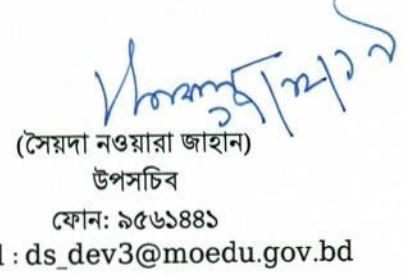 (সৈয়দা নওয়ারা জাহান)
উপসচিব
ফোন: ৯৫৬১৪৪১
l : ds_dev3@moedu.gov.bd